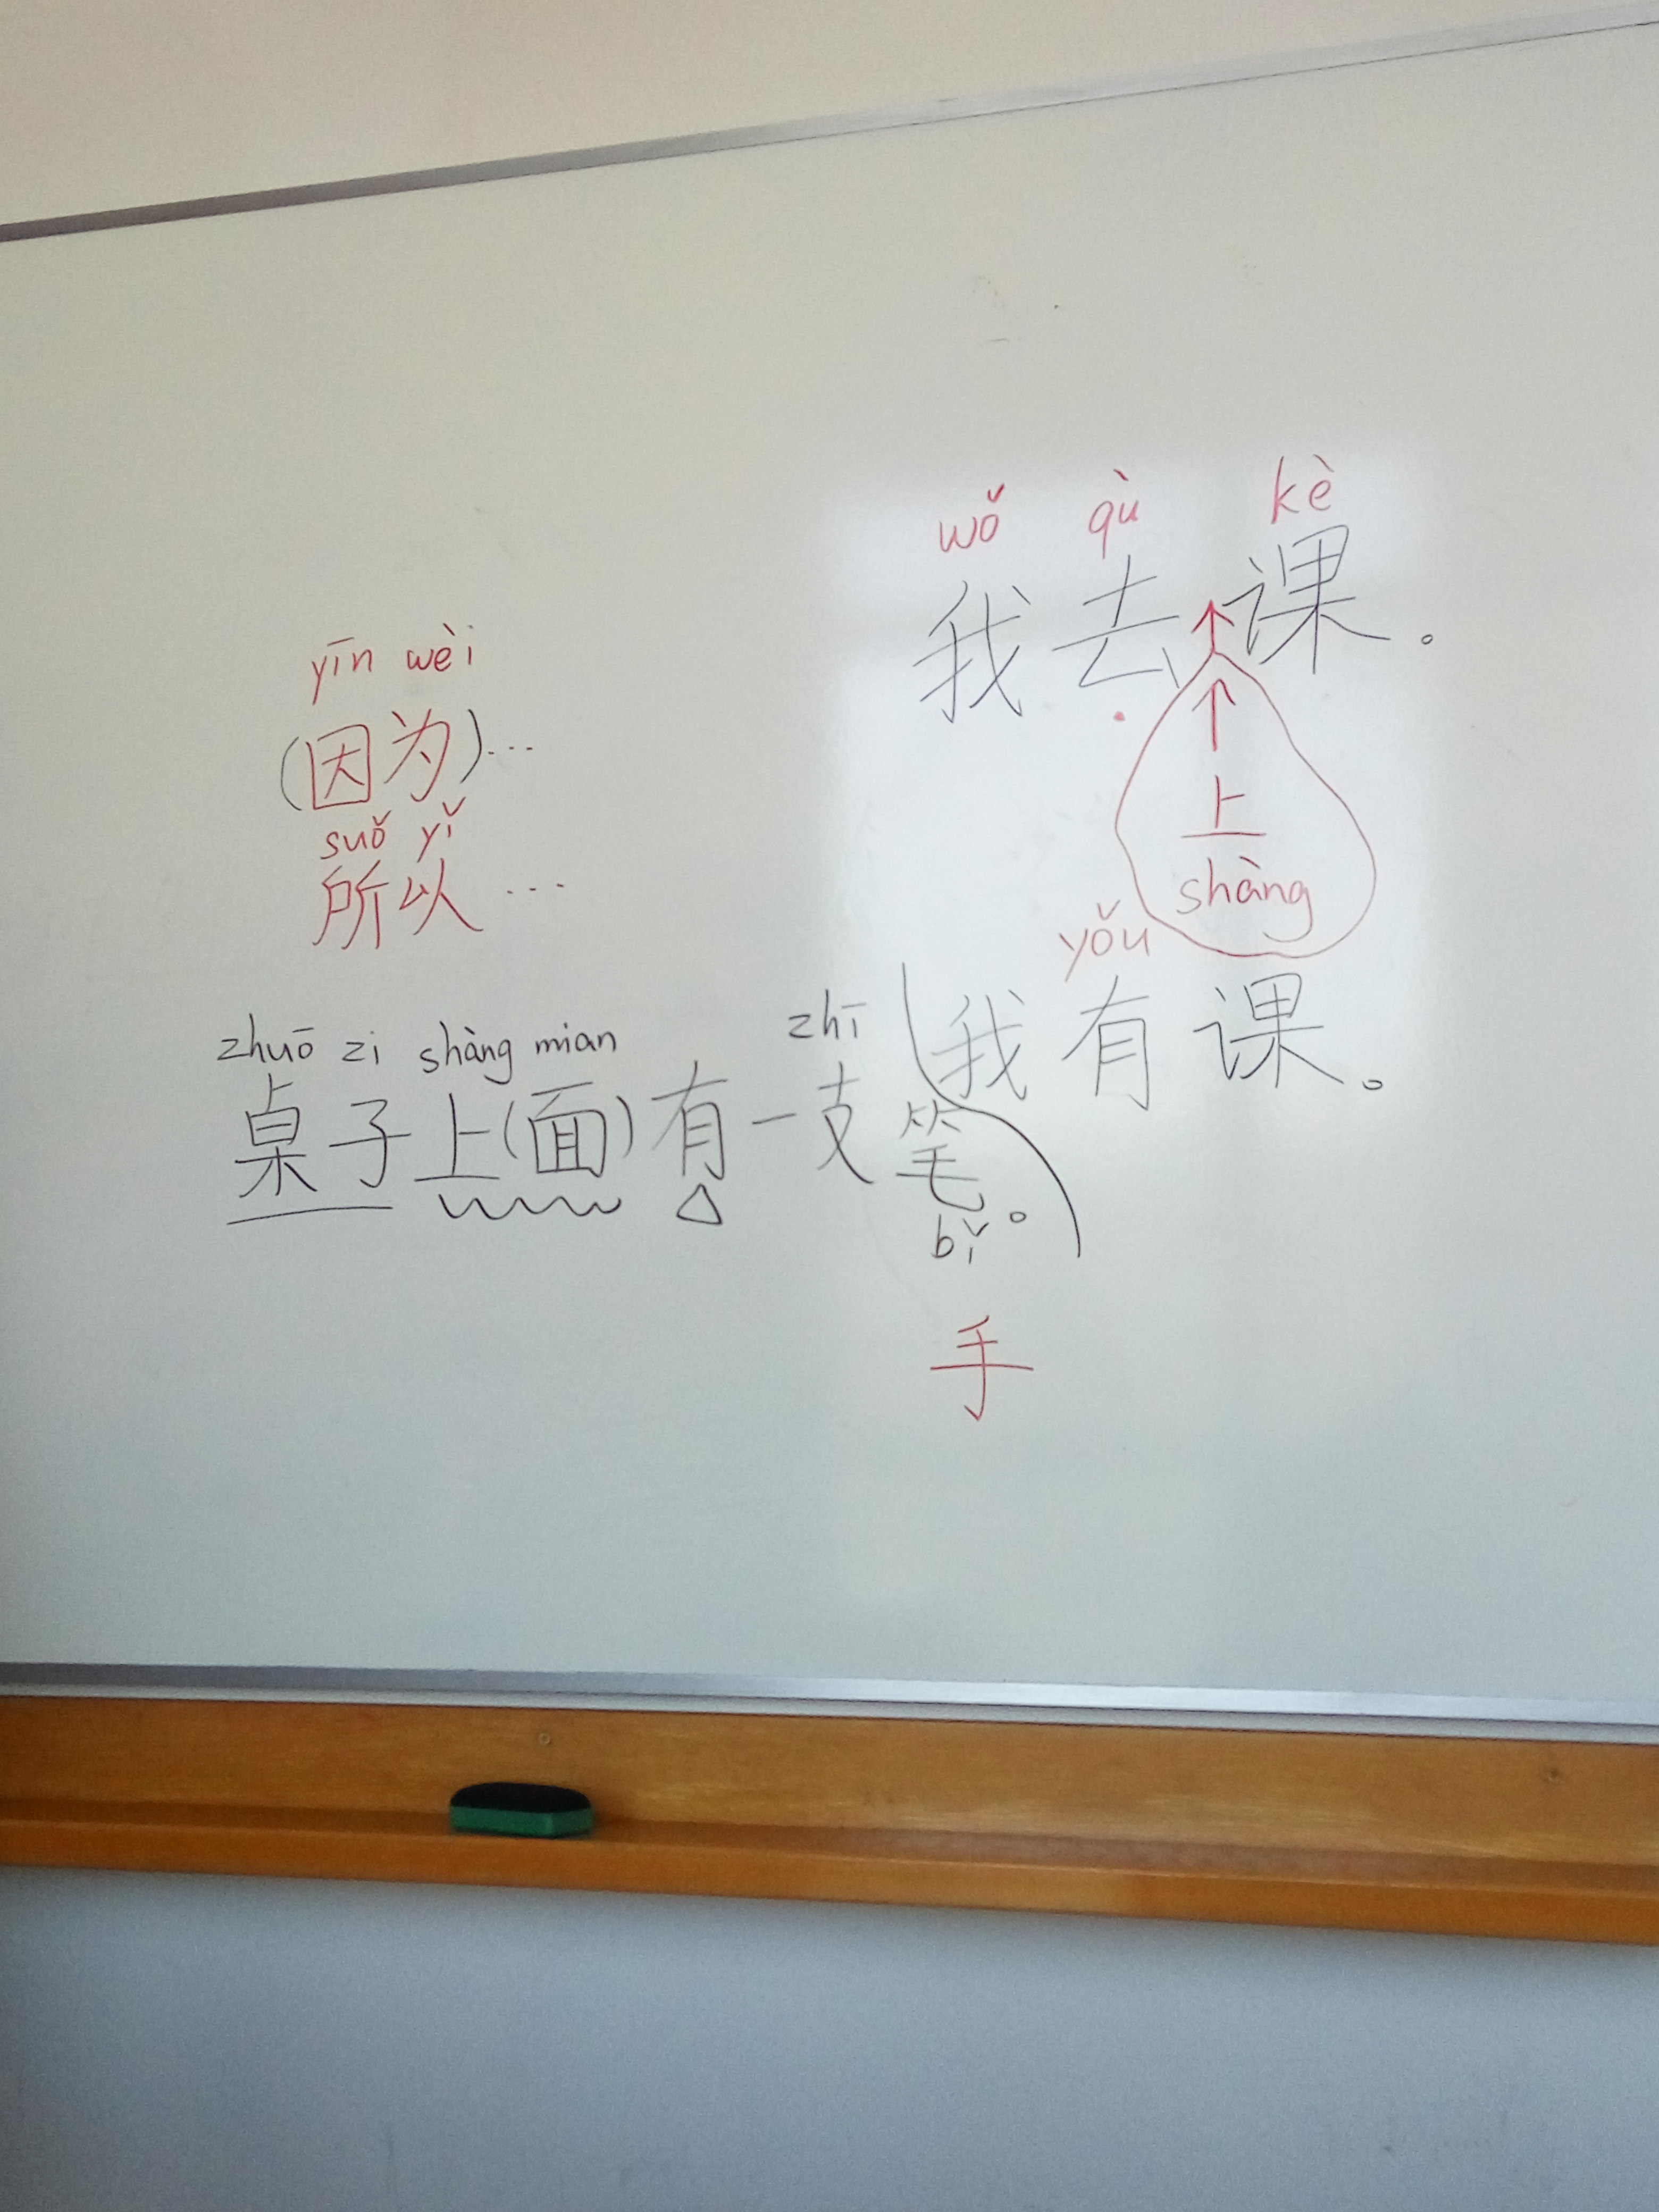 wǒ qù kè
我去课。
上
shàng
yīn wèi
(因为)...
suǒ yǐ
所以...
yǒu
我有课。
zhuō zi shàng mian zhī
桌子上(面)有一支笔。
bǐ
手